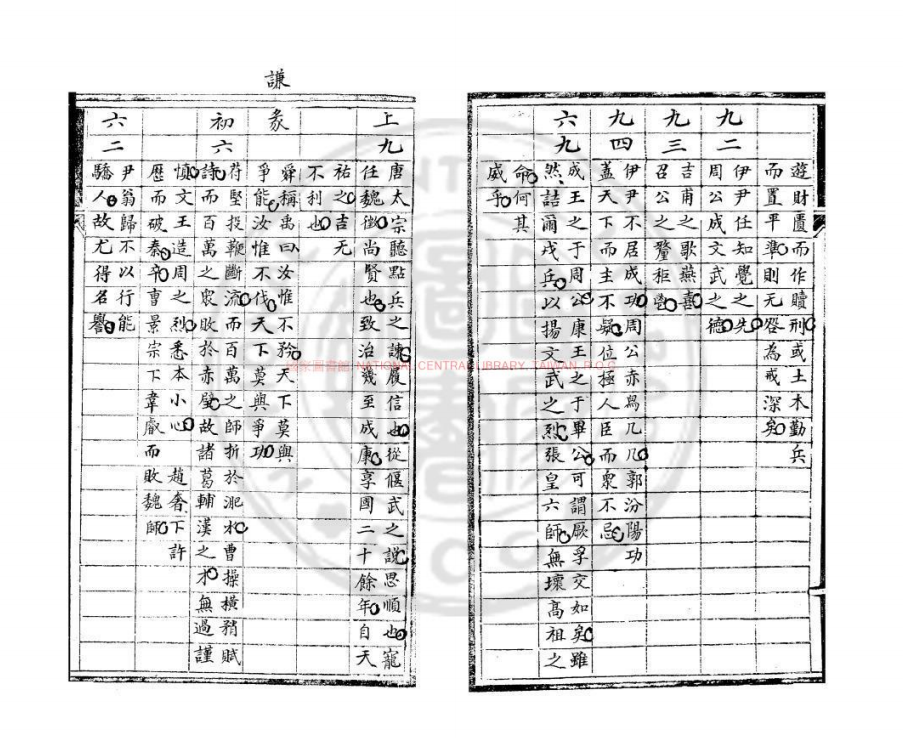 遊財匱而作贖刑或土木勤兵
而置平準則无咎為戒深矣
九二
伊尹任知覺之先
周公成文武之德
九三
吉甫之歌燕喜
召公之釐秬鬯
九四
伊尹不居成功周公赤舄几几郭汾陽功
蓋天下而主不疑位極人臣而衆不忌
六九
成王之于周公康王之于畢公可謂厥孚交如矣雖
然詰爾戎兵以揚文武之烈張皇六師無壞高祖之
命何其
威乎
上九
唐太宗聽點兵之諫履信也從偃武之說思順也寵
任魏徵尚賢也致治幾至成康享國二十餘年自天
祐之吉无
不利也
謙
彖
舜稱禹曰汝惟不矜天下莫與
爭能汝惟不伐天下莫與爭功
初六
苻堅投鞭斷流而百萬之師折於淝水曹操橫矟賦
詩而百萬之衆敗於赤壁故諸葛輔漢之才無過謹
慎文王造周之烈悉本小心 趙奢下許
歷而破秦 景宗下韋叡而敗魏師
六二
尹翁歸不以行能
驕人故尤得名譽
國家圖書館 NATIONAL CENTRAL LIBRARY, TAIWAN, R.O.C